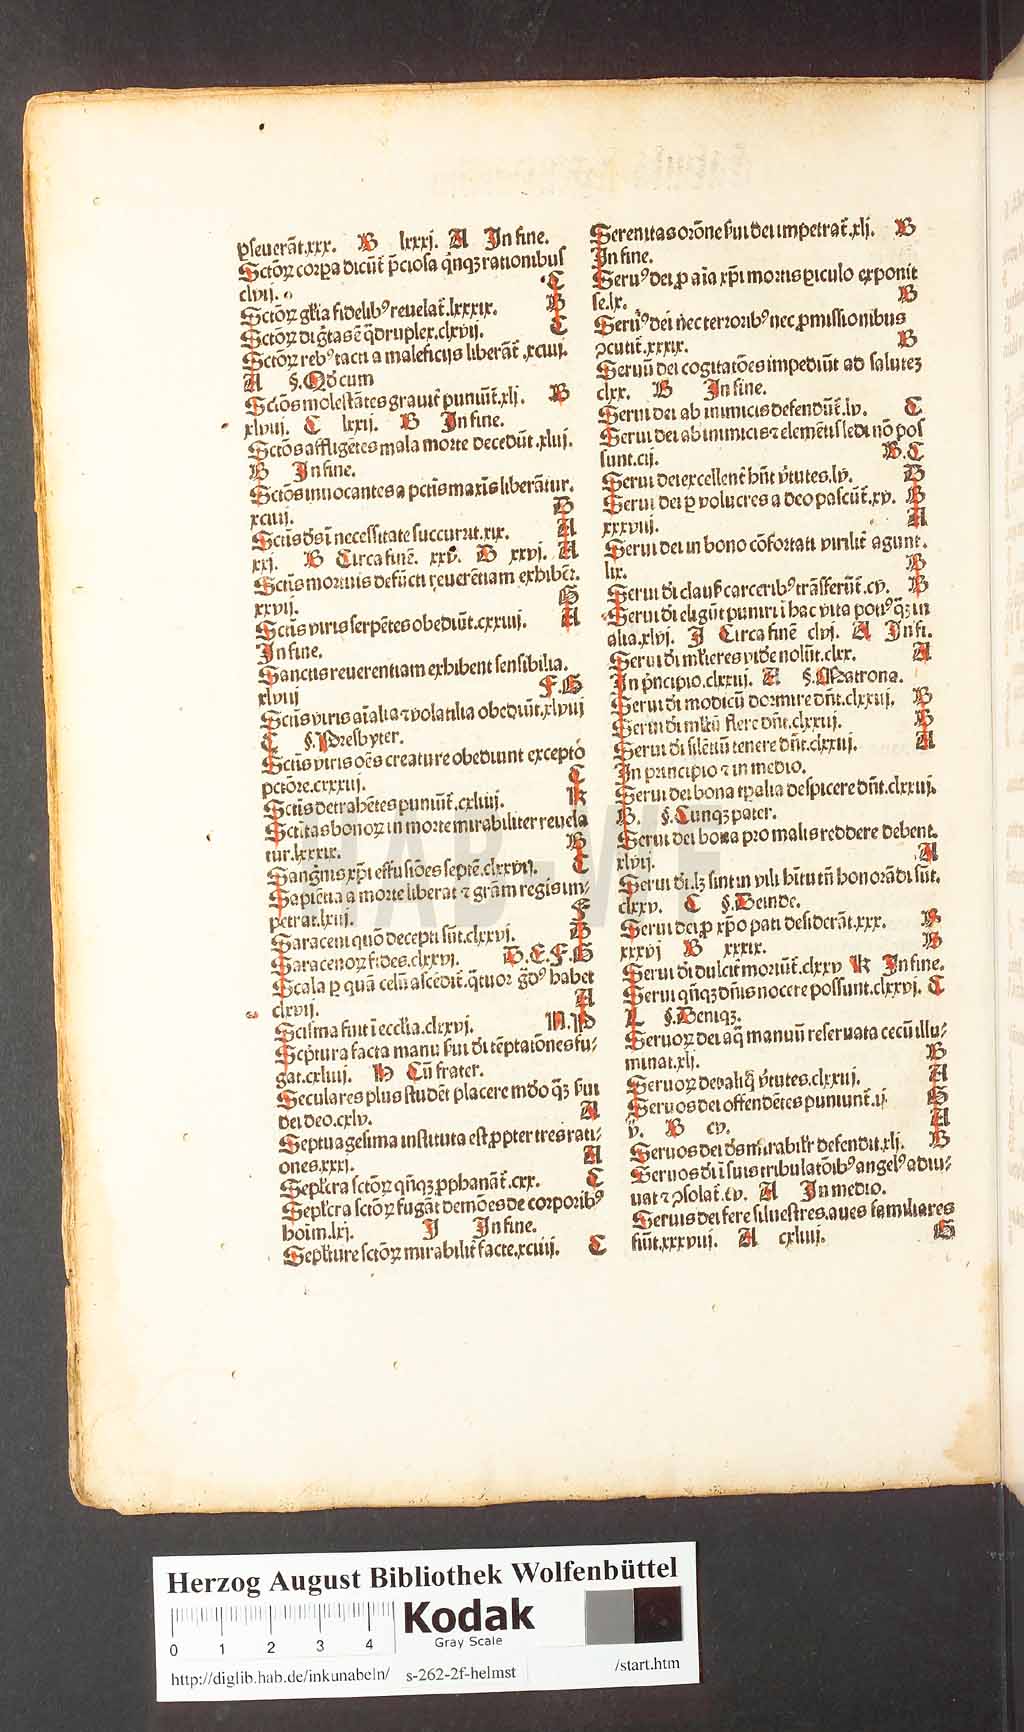 ꝑseuerãt.xxx. B lxxxj. A In fine.
Sctõꝝ corꝑa dicũt̃ p̃ciosa q̃nqꝫ rationibus
clvij. C
Sctõꝝ gl̃ia fidelibꝰ reuelat̃.lxxxix. B
Sctõꝝ dig̃tas ẽ q̃druplex.clxvij. C
Sctõꝝ rebꝰ tacti a maleficijs liberãt̃.xciiij.
A §.Qđ cum
Sctõs molestãtes grauit̃ puniũt̃.xlj. B
xlviij. C lxxij. B In fine.
Sctõs affligẽtes mala morte decedũt.xliij.
B In fine.
Sctõs inuocantes a pctis̃ maxis̃ liberãtur.
xciiij. B
Sctis̃ đs ĩ necessitate succurrit.xix. A
xxj. B Circa finẽ. xxv. B xxvj. A
Sctis̃ mortuis defũcti reuerẽtiam exhibẽt.
xxvij. G
Sctis̃ viris serpẽtes obediũt.cxxiiij. A
In fine.
Sanctis reuerentiam exhibent sensibilia.
xlviij F.G
Sctis̃ viris aĩalia ⁊ volatilia obediũt.xlviij
C §.Presbyter.
Sctis̃ viris oẽs creature obediunt excepto
pctõre.cxxxiij. C
Sctis̃ detrahẽtes puniũt̃.cxliiij. K
Sctĩtas bonoꝝ in morte mirabiliter reuela
tur.lxxxix. B
Sang̃nis xp̃i effusiões septẽ.clxxvij. C
Sapiẽtia a morte liberat ⁊ grãm regis im⸗
petrat.lxiij. F
Saraceni quõ decepti sũt.clxxvj. B
Saracenoꝝ fides.clxxvj. D.E.F.G
Scala ꝑ quã celũ ascẽdit̃.q̃tuor g̃dꝰ habet
clxvij. A
Scisma fuit ĩ ecclĩa.clxxvj. N.P
Scp̃tura facta manu fui đi tẽptatiõnes fu⸗
gat.cxliiij. H Cũ frater.
Seculares plus studẽt placere mđo q̃ꝫ fui
dei deo.cxlv. A
Septuagesima instituta est ꝓpter tres rati⸗
ones.xxxj. A
Seplc̃ra sctõꝝ qñqꝫ ꝓphanãt̃.cxx. C
Seplc̃ra sctõꝝ fugãt demões de corporibꝰ
hoĩm.lxj. I In fine.
Seplt̃ure sctõꝝ mirabilit̃ facte.xciiij. C
Serenitas orõne fui dei impetrat̃.xlj. B
In fine.
Seruꝰ dei ꝓ aĩa xp̃i mortis ꝑiculo exponit
se.lx. B
Seruꝰ dei nec terroribꝰ nec ꝓmissionibus
ↄcutit̃.xxxix. B
Seruũ dei cogitatões impediũt ad salutẽ
clxx. B In fine.
Serui dei ab inimicis defendũt̃.lv. C
Serui dei ab inimicis ⁊ elemẽtis ledi nõ pos
sunt.cij. B.C
Serui dei excellent̃ hñt v̓tutes.lv. B
Serui dei ꝑ volucres a deo pascũt̃.xv. B
xxxviij. A
Serui dei in bono cõfortati virilit̃ agunt.
lix. B
Serui đi clausi̓ carceribꝰ trãsferũt̃.cv. B
Serui đi eligũt puniri ĩ hac vita potiꝰ q̃ꝫ in
alia.xlvj. I Circa finẽ clvj. A In fi.
Serui đi ml̓ieres vide̓ nolũt.clxx. A
In p̓ncipio.clxxiij. A §.Matrona.
Serui đi modicũ dormire dñt.clxxiij. B
Serui đi ml̓tũ flere dñt.clxxiij. B
Serui đi silẽtiũ tenere dñt.clxxiij. A
In principio ⁊ in medio.
Serui dei bona tp̃alia despicere dñt.clxxiij.
B. §.Cunqꝫ pater.
Serui dei bona pro malis reddere debent.
xlvij. A
Serui đi.lꝫ sint in vili hĩtu tñ honorãdi sũt.
clxxv. C §.Deinde.
Serui dei ꝓ xp̃o pati desiderãt.xxx. B
xxxvj B xxxix. B
Serui đi dulcit̃ moriũt̃.clxxv K In fine.
Serui qñqꝫ dñis nocere possunt.clxxvj. C
L §.Deniqꝫ.
Seruoꝝ dei aq̃ manuũ reseruata cecũ illu⸗
minat.xlj. B
Seruoꝝ dei aliq̃ v̓tutes.clxxiij. A
Seruos dei offendẽtes puniunt̃.ij. G
v. B cv. A
Seruos dei đs mirabilr̃ defendit.xlj. B
Seruos đi ĩ suis tribulatõibꝰ angelꝰ adiu⸗
uat ⁊ ↄsolat̃.cv. A In medio.
Seruis dei fere siluestres.aues familiares
fiũt.xxxviij. A cxliiij. G
HAB-WF
Herzog August Bibliothek Wolfenbüttel
0 1 2 3 4
Kodak
Gray Scale
http://diglib.hab.de/inkunabeln/ s-262-2f-helmst /start.htm